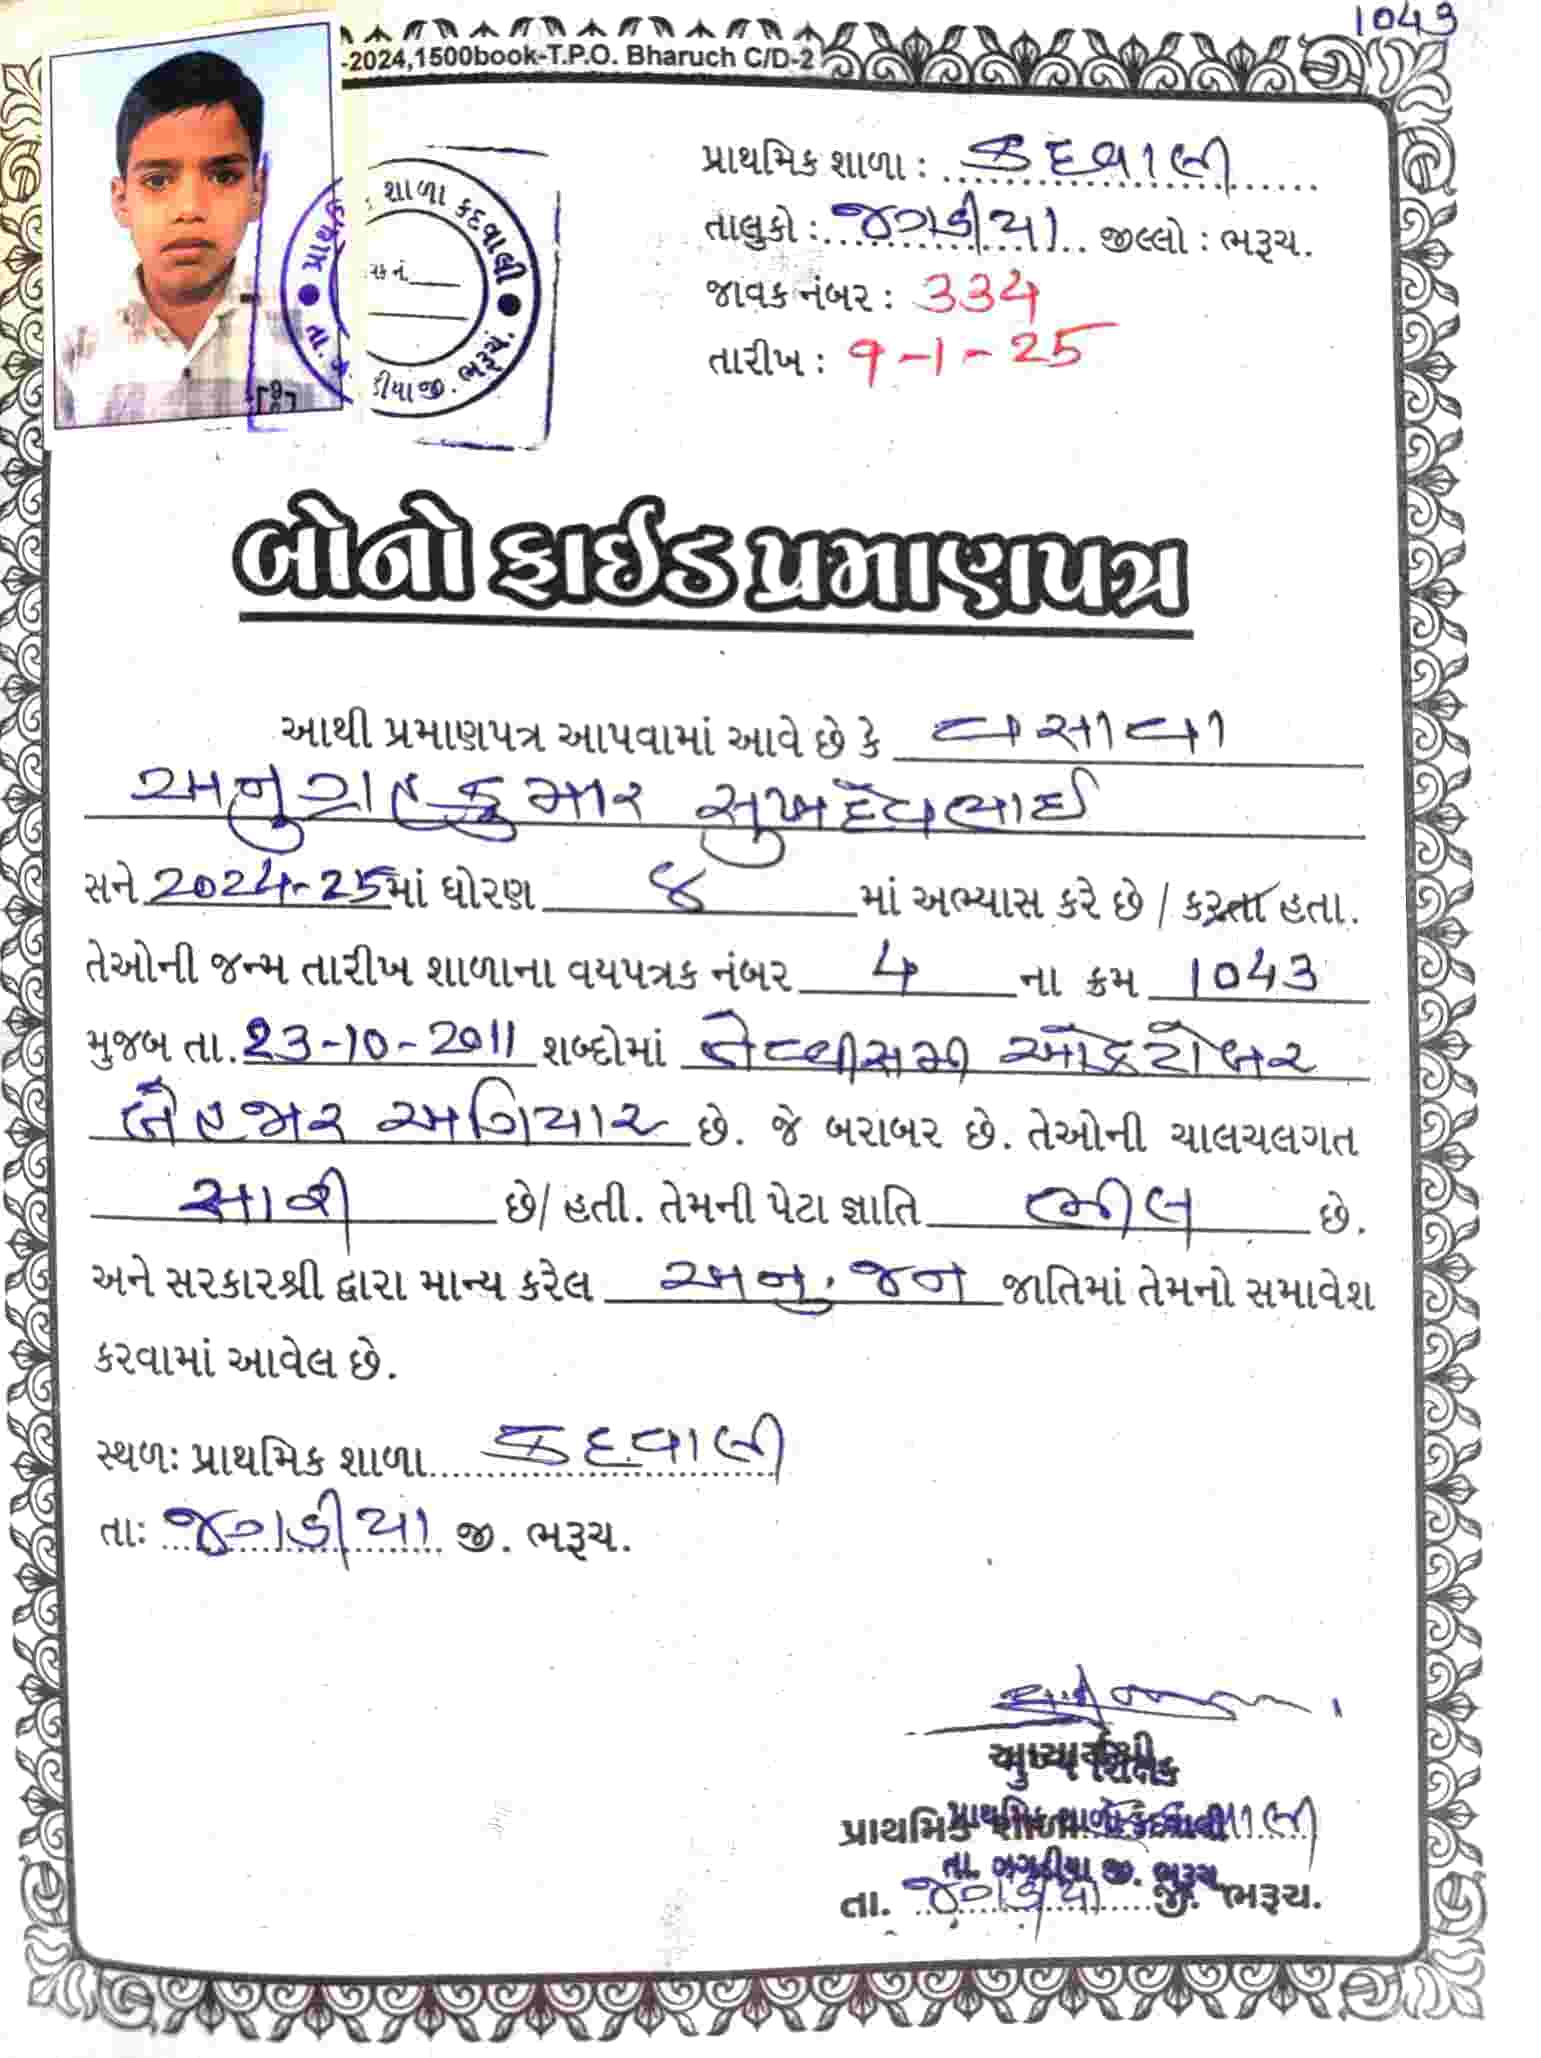 1043
-2024,1500book-T.P.O. Bharuch C/D-2
પ્રાથમિક શાળા : કદવાલી
તાલુકો : જગડીયા જીલ્લો : ભરૂચ.
જાવક નંબર : 334
તારીખ : 9-1-25
શાળા કદવાલી
ડીયા જી. ભરૂચ.
બોનોફાઈડ પ્રમાણપત્ર
આથી પ્રમાણપત્ર આપવામાં આવે છે કે વસાવા
અનુગ્રહકુમાર સુખદેવભાઈ
સને 2024-25માં ધોરણ ૪ માં અભ્યાસ કરે છે / કરતા હતા.
તેઓની જન્મ તારીખ શાળાના વયપત્રક નંબર 4 ના ક્રમ 1043
મુજબ તા. 23-10-2011 શબ્દોમાં ત્રેવીસમી ઓક્ટોબર
બેહજાર અગિયાર છે. જે બરાબર છે. તેઓની ચાલચલગત
સારી છે/ હતી. તેમની પેટા જ્ઞાતિ ભીલ છે.
અને સરકારશ્રી દ્વારા માન્ય કરેલ અનુ. જન જાતિમાં તેમનો સમાવેશ
કરવામાં આવેલ છે.
સ્થળઃ પ્રાથમિક શાળા કદવાલી
તાઃ જગડીયા જી. ભરૂચ.
પ્રાથમિક શાળા કદવાલી
તા. જગડીયા જી. ભરૂચ.